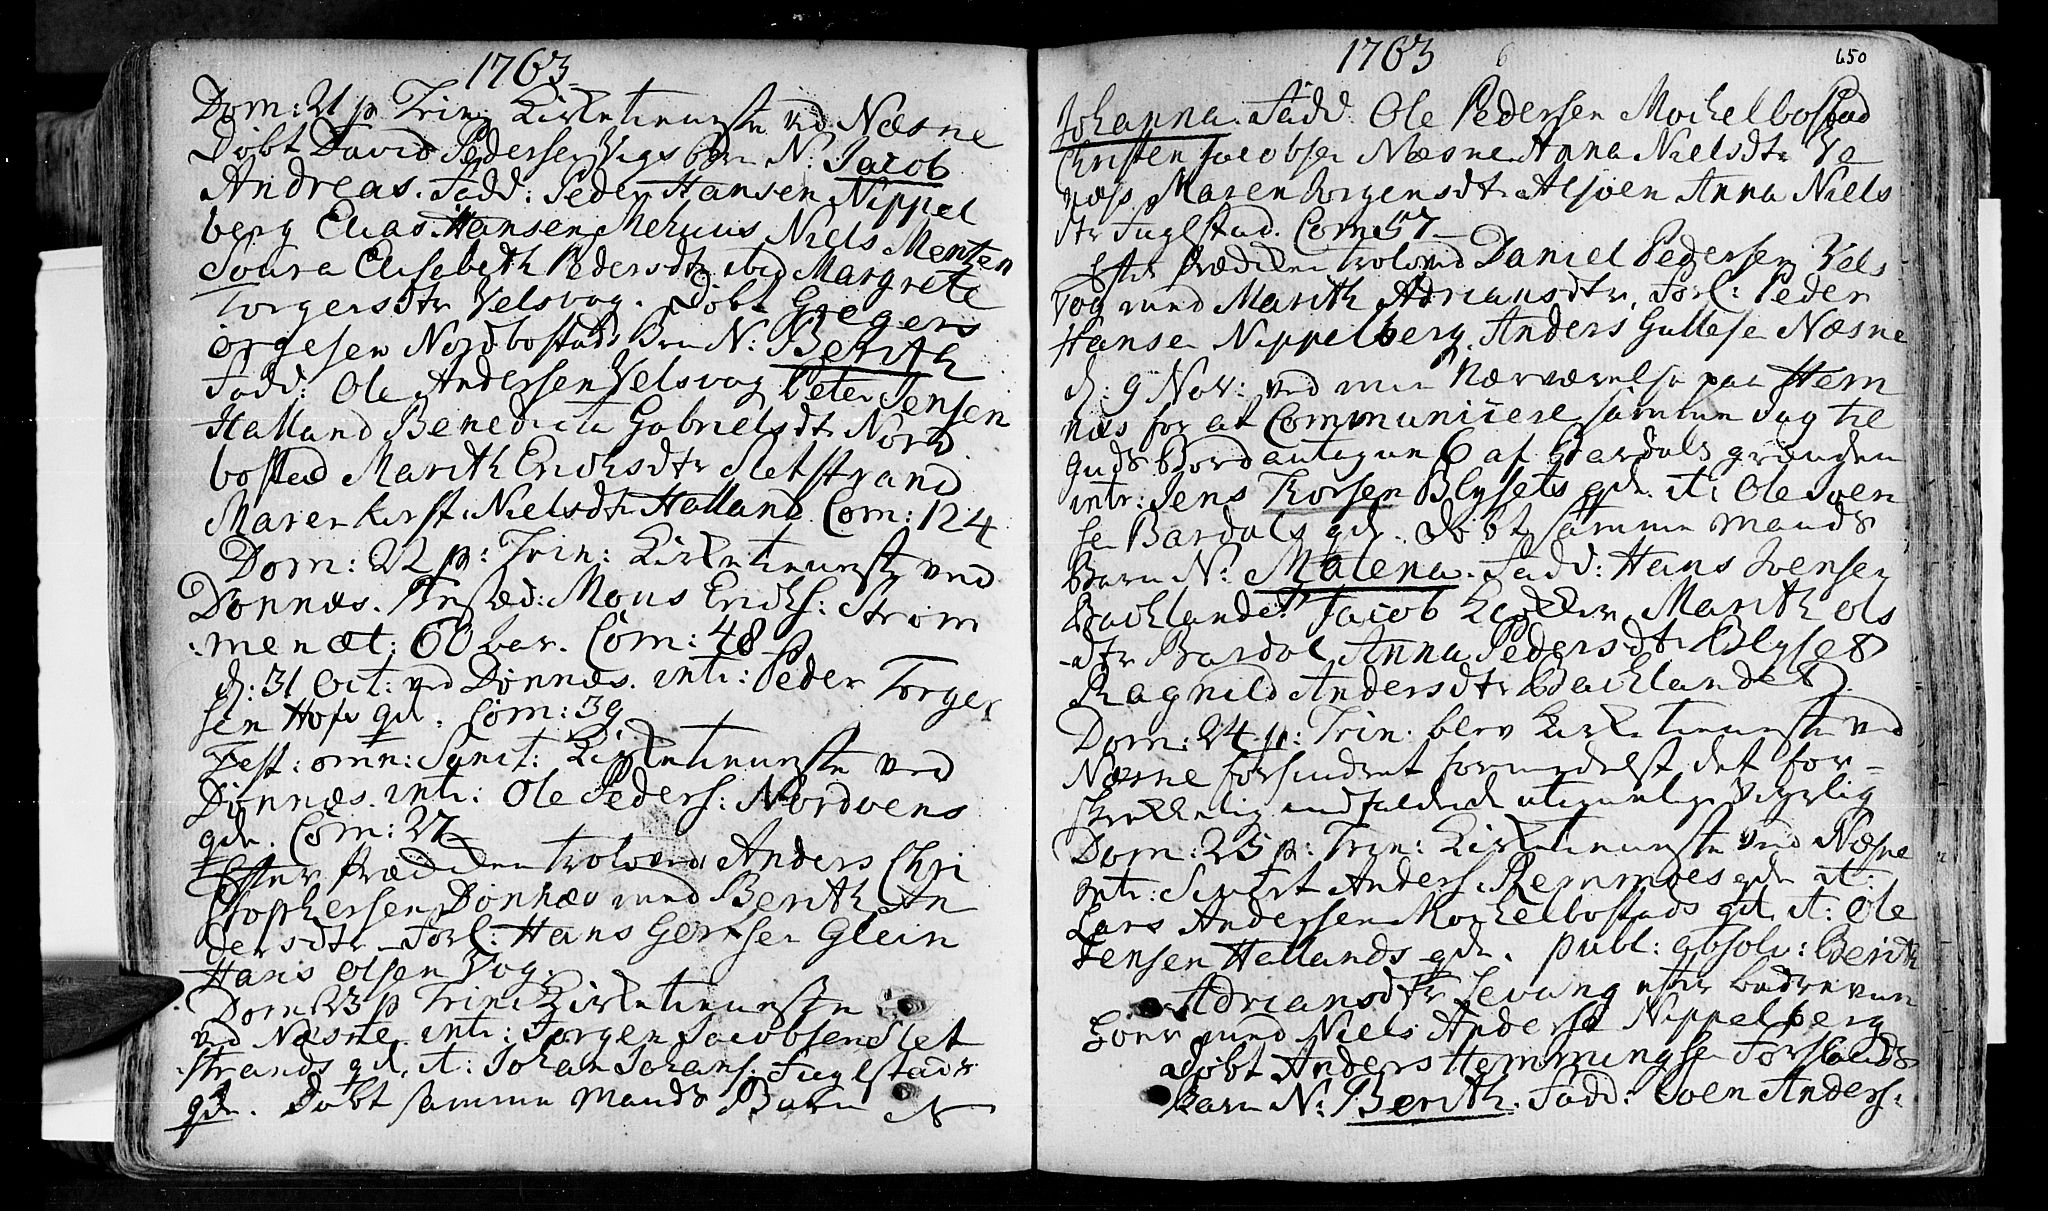 1763
Dom: 21 p Trin: Kirketieneste ved Næsne
Døbt David Pedersen Vogs barn N: Jacob
Andreas. Fadd: Peder Hansen Nippel
berg Elias Hansen Niels Mentzen
Soura Elisabeth Pedersdtr ibid Margrete
Torgersdtr Velsvog. Døbt Gregers
ørgesen Nordbostads Brn N: Berith
Fadd: Ole Andersen Velsvog Peter Jensen
Halland Benedicta Gabrielsdtr Nord
bostad Marith Erichsdtr Sletstrand
Maren Kirst. Nielsdtr Halland Com: 124
Dom: 22 p: Trin: Kirketieneste ved
Dønnæs. Mons Erichs: Strøm
men æt: 60 Com: 48
d: 31 Oct: ved Dønnæs. intr: Peder Torger
sen Hofs qd. Com: 39
Fest: omn: Sanct: Kirketieneste ved
Dønnæs. intr: Ole Peders: Nordvens
qde. Com: 27
Efter Prædiken trolovet Anders Chri
stophersen Dønnæs med Berith An
dersdtr Forl: Hans Hansen Glein
Hans Olsen Vog.
Dom 23 p Trin: Kirketieneste
ved Næsne. intr: Jørgen Jacobsen Slet
strands qd. it: Johan Johans: Fuglstads
qde. Døbt samme Mands Barn N
1763
650
Johanna. Fadd: Ole Pedersen Mochelbostad
Christen Jacobsen Næsne Anna Nielsdtr Ve
næs Maren Jørgensdtr Alsøen Anna Niels
dtr Fuglstad. Com: 57
Efter Prædiken trolovet Daniel Pedersen Vels
vog med Marith Adriansdtr, Forl: Peder
Hansen Nippelberg Anders Gullesen Næsne
d: 9 Nov: ved min Nærværelse paa Hem
næs for at Communicere samme dag til
Guds Bord 6 af Bardals grænden
intr: Jens Thorsen Blysets qde. it: Ole Iven
sen Bardals qde. Døbt samme Mands
Barn N: Malena. Fadd: Hans Ivensen
Bachlandet Jacob Marith Ols
dtr Bardal Anna Pedersdtr Blyset
Ragnild Andersdtr Bachlandet
Dom: 24 p: Trin. blev Kirketieneste ved
Næsne forhindret formedelst det for-
skrekkelig indfaldende Veyrlig
Dom: 25 p: Trin: Kirketieneste ved Næsne
intr: Sivert Anders: Remmoes qde it:
Lars Andersen Mochelbostads qd. it: Ole
Jensen Hallands qde. publ: absolv: Berith
Adriansdtr Levang efter
med Niels Andersen Nippelberg
Døbt Anders Hemmingsen Forslands
Barn N: Berith. Fadd: Iven Anders: